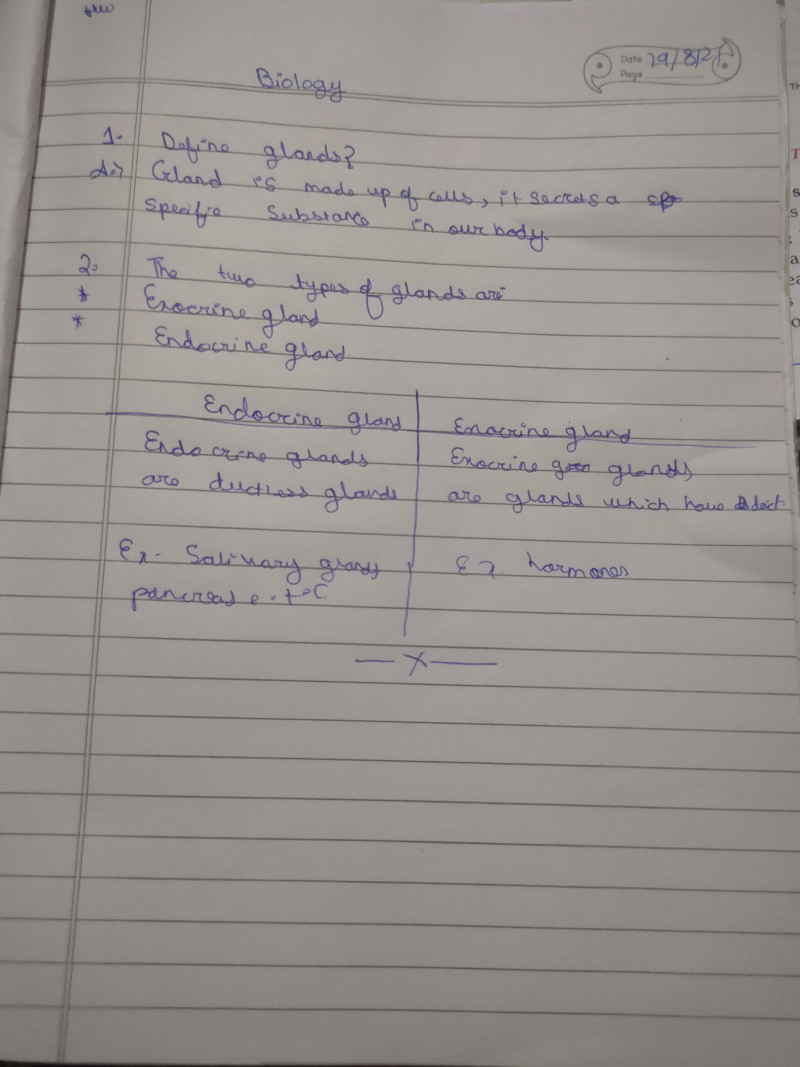 Biology
Date 29/8/21
Page
1. Define glands?
A:> Gland is made up of cells, it secrets a
specific substance in our body.
2. The two types of glands are
* Exocrine gland
* Endocrine gland.
Endocrine gland Exocrine gland
Endocrine glands Exocrine glands
are ductless glands are glands which have duct.
Ex- Salivary glands Ex hormones
pancreas e.t.c
— X —